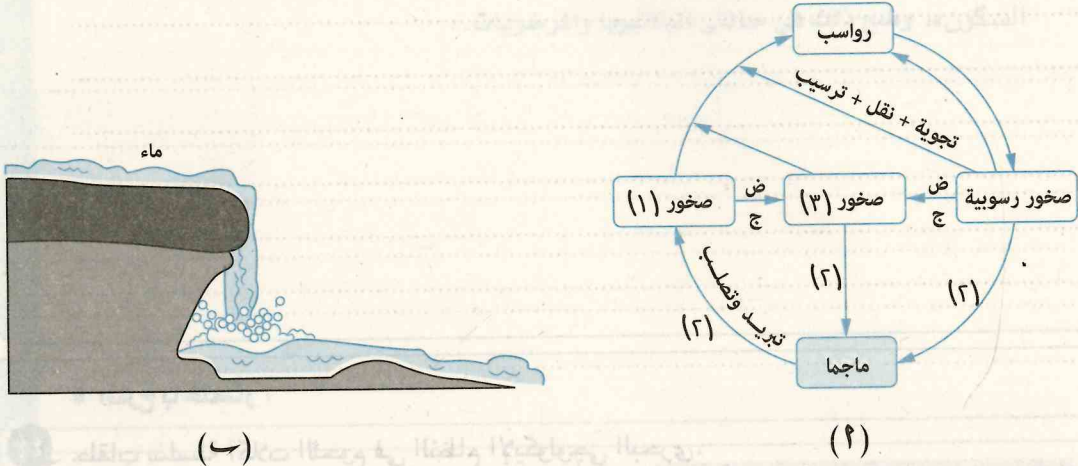 رواسب
تجوية + نقل + ترسيب
صخور رسوبية
ض
ج
صخور (٣)
ض
ج
صخور (١)
(٢)
(٢)
تبريد وتصلب
(٢)
ماجما
(٢)
(أ)
ماء
(ب)